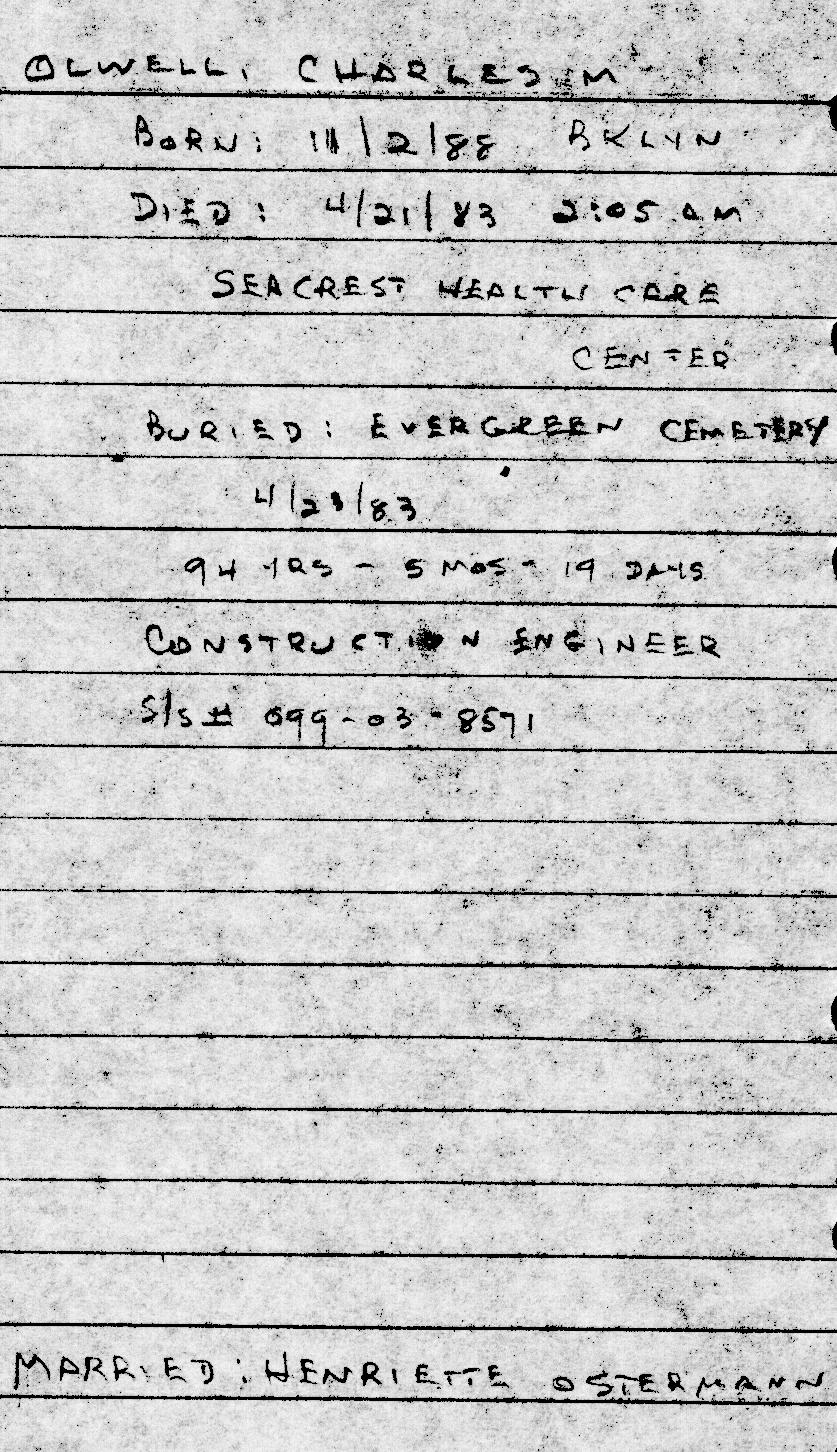 OLWELL, CHARLES M
BORN: 11/2/88 BKLYN
DIED: 4/21/83 2:05 AM
SEACREST HEALTH CARE
CENTER
BURIED: EVERGREEN CEMETERY
4/23/83
94 YRS - 5 MOS - 19 DAYS
CONSTRUCTION ENGINEER
S/S # 099-03-8571
MARRIED: HENRIETTE OSTERMANN